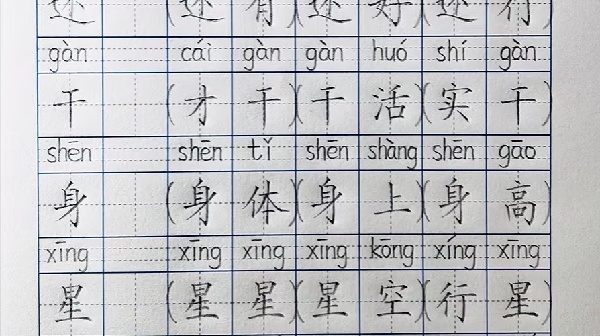 还 (还 有)(还 好)(还 行)
gàn cái gàn gàn huó shí gàn
干 (才 干)(干 活)(实 干)
shēn shēn tǐ shēn shàng shēn gāo
身 (身 体)(身 上)(身 高)
xīng xīng xīng xīng kōng xíng xīng
星 (星 星)(星 空)(行 星)